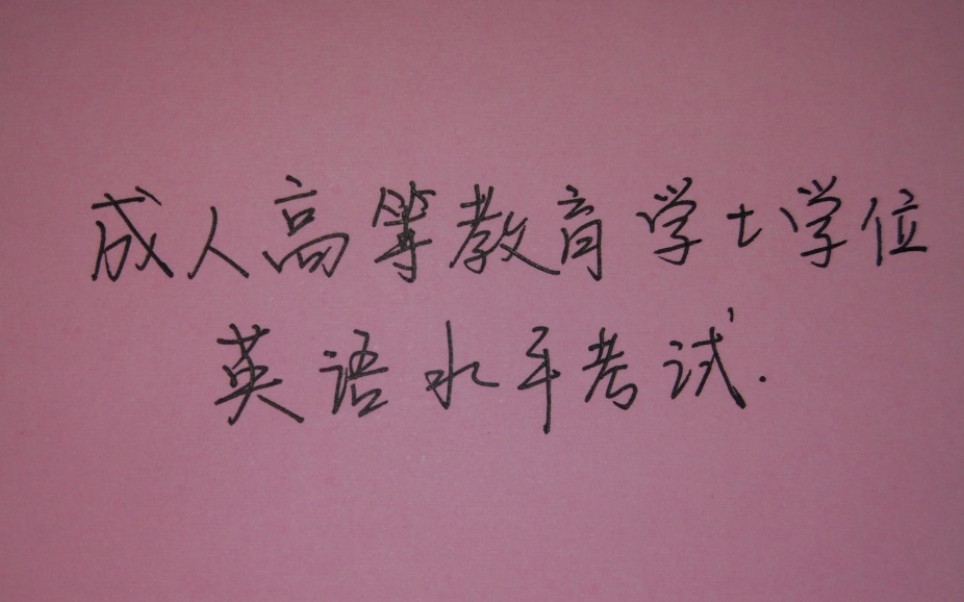 成人高等教育学士学位
英语水平考试.